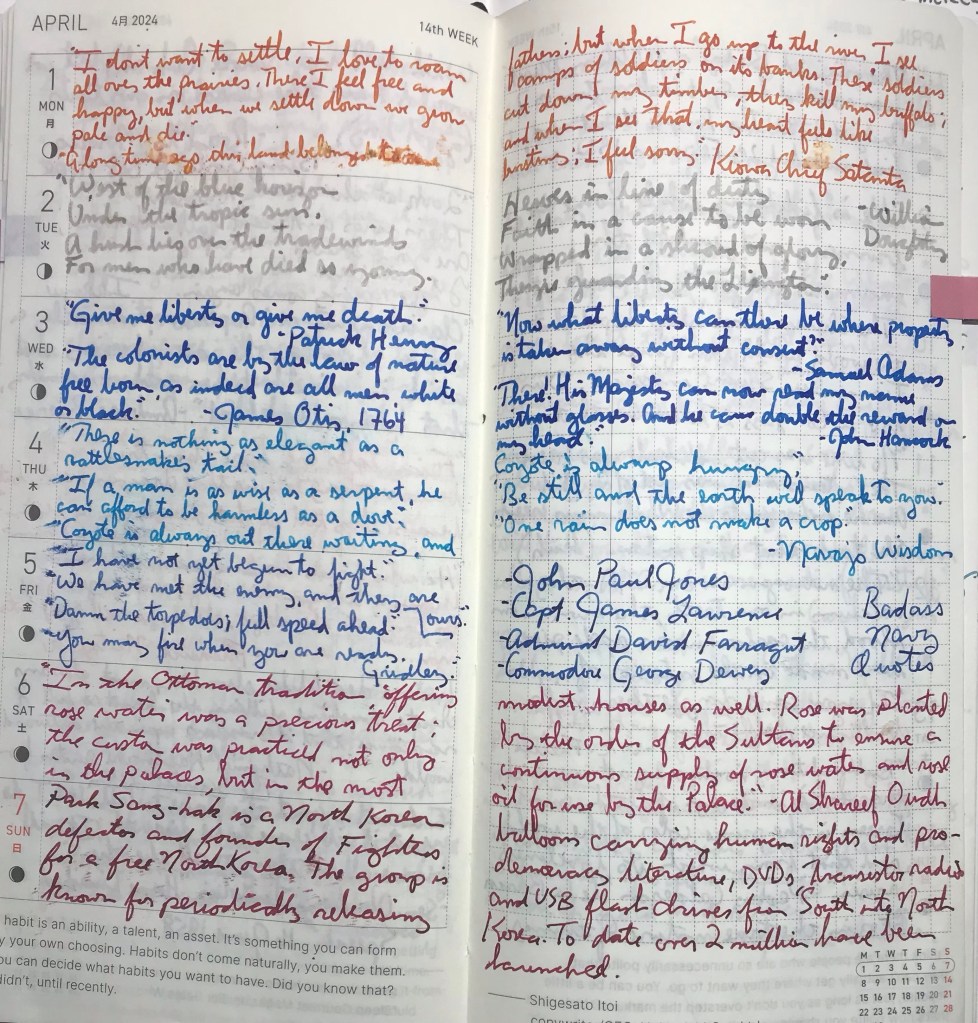 APRIL 4月 2024
14th WEEK
1
MON
月
"I don't want to settle, I love to roam
all over the prairies. There I feel free and
happy, but when we settle down we grow
pale and die.
A long time ago this land belonged to our
2
TUE
火
"West of the blue horizon
Under the tropic sun.
A hush lies over the tradewinds
For men who have died so young.
3
WED
水
"Give me liberty or give me death."
- Patrick Henry
"The colonists are by the law of nature
free born, as indeed are all men, white
or black." - James Otis, 1764
4
THU
木
"There is nothing as elegant as a
rattlesnake's tail."
"If a man is as wise as a serpent, he
can afford to be harmless as a dove."
"Coyote is always out there waiting, and
5
FRI
金
"I have not yet begun to fight."
"We have met the enemy, and they are
ours."
"Damn the torpedos; full speed ahead."
"You may fire when you are ready,
Gridley."
6
SAT
土
"In the Ottoman tradition offering
rose water was a precious treat;
the custom was practiced not only
in the palaces, but in the most
7
SUN
日
Park Sang-hak is a North Korean
defector and founder of Fighters
for a free North Korea. The group is
known for periodically releasing
habit is an ability, a talent, an asset. It's something you can form
your own choosing. Habits don't come naturally, you make them.
ou can decide what habits you want to have. Did you know that?
didn't, until recently.
fathers; but when I go up to the river I see
camps of soldiers on its banks. These soldiers
cut down my timber, they kill my buffalo;
and when I see that, my heart feels like
bursting; I feel sorry." Kiowa Chief Satanta
Heroes in line of duty
Faith in a cause to be won
Wrapped in a shroud of glory,
They're guarding the
- William
Doughty
"Now what liberty can there be where property
is taken away without consent?"
- Samuel Adams
"There! His Majesty can now read my name
without glasses. And he can double the reward on
my head."
- John Hancock
Coyote is always hungry."
"Be still and the earth will speak to you."
"One rain does not make a crop."
- Navajo Wisdom
- John Paul Jones
- Capt. James Lawrence
- Admiral David Farragut
- Commodore George Dewey
Badass
Navy
Quotes
modest houses as well. Rose was planted
by the order of the Sultans to ensure a
continuous supply of rose water and rose
oil for use by the Palace." - Al Shareef Oudh
balloons carrying human rights and pro-
democracy literature, DVDs, transistor radios
and USB flash drives from South into North
Korea. To date over 2 million have been
launched.
Shigesato Itoi
M T W T F S S
1 2 3 4 5 6 7
8 9 10 11 12 13 14
15 16 17 18 19 20 21
22 23 24 25 26 27 28